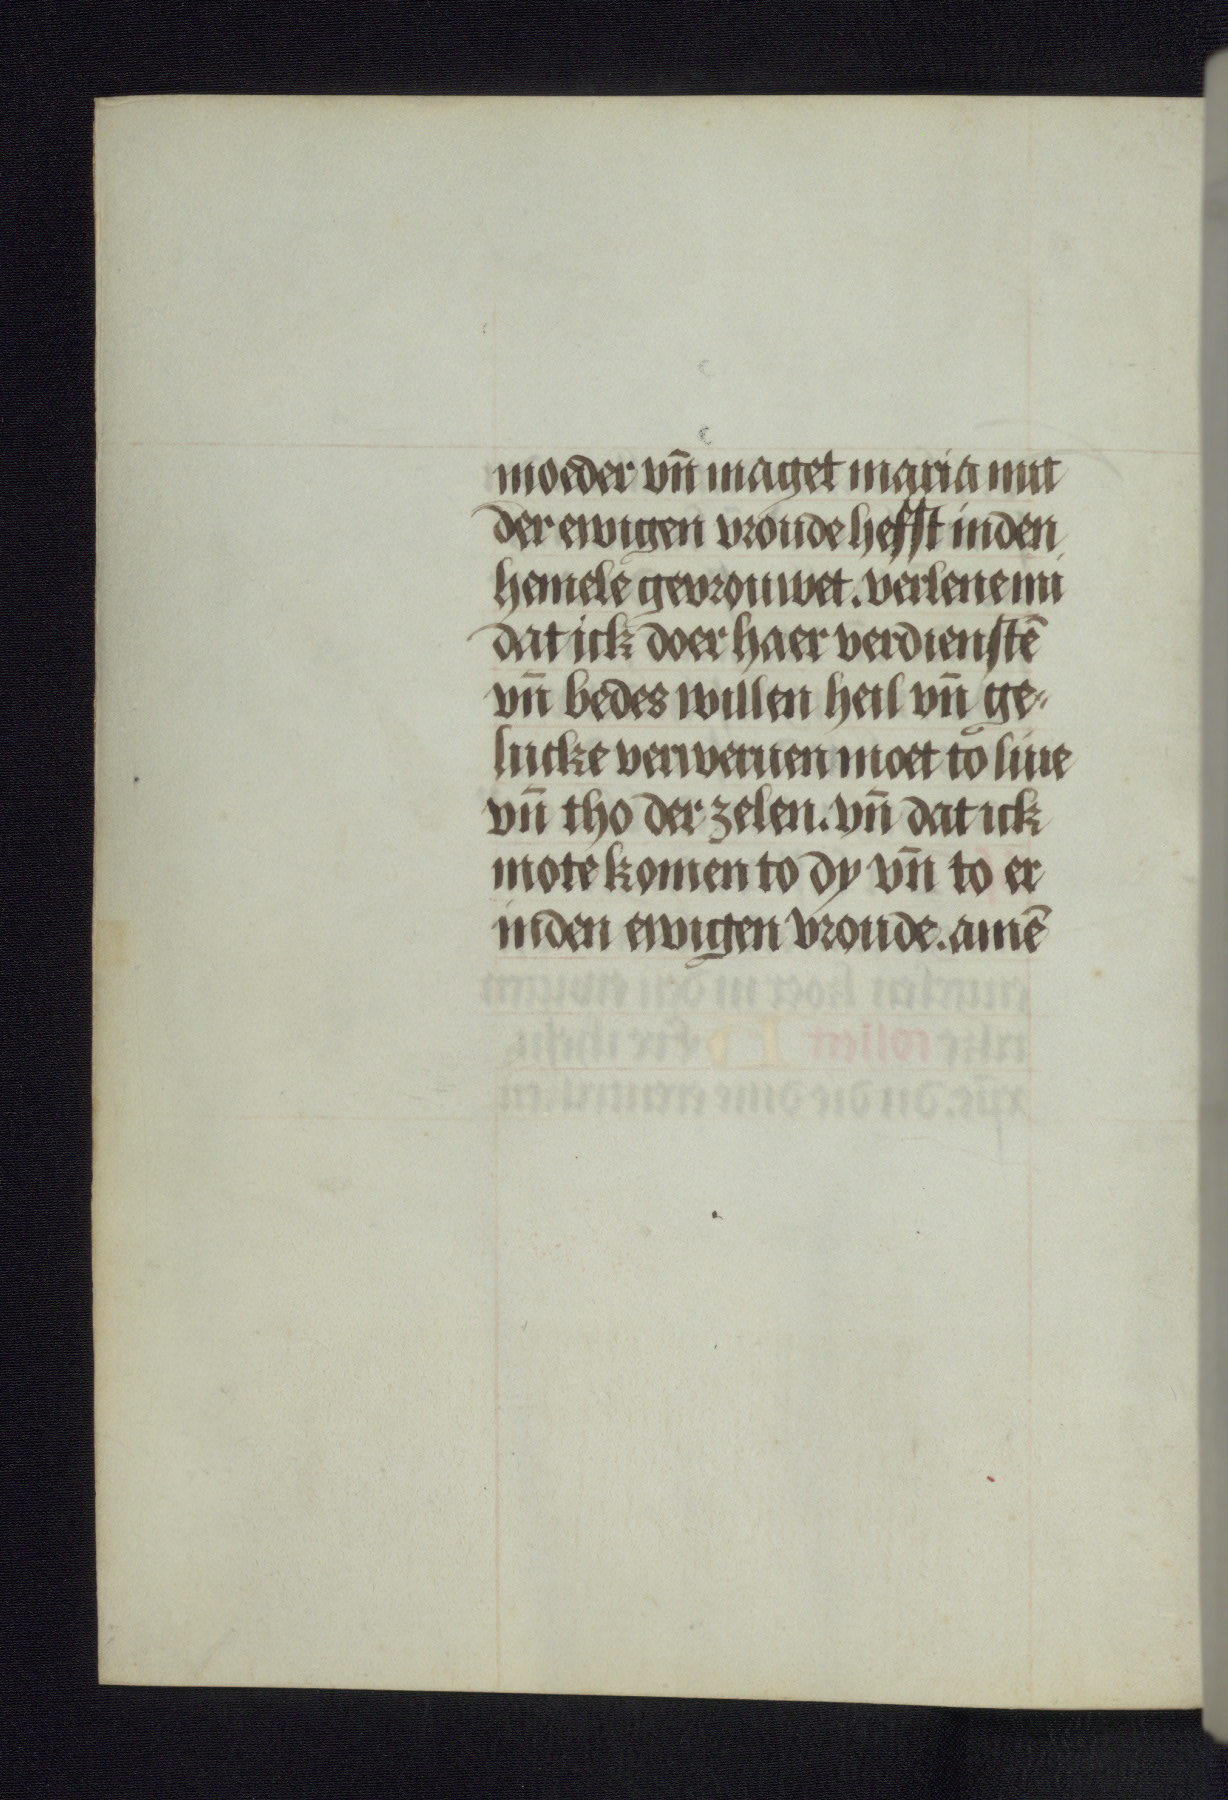 moeder vn̄ maget maria mit
der ewigen vroude hefft in den
hemele gevrouwet. verlene mi
dat ick doer haer verdienstē
vn̄ bedes willen heil vn̄ ge-
lucke verweruen moet to liue
vn̄ tho der zelen. vn̄ dat ick
mote komen to dy vn̄ to er
in den ewigen vroude. amē